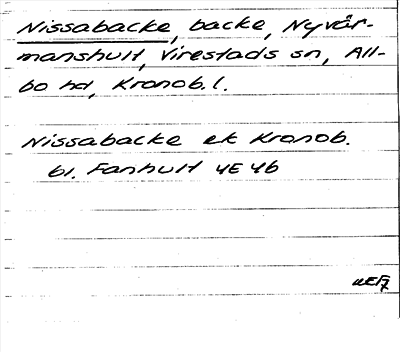 Nissabacke, backe, Nyvår-
manshult, Virestads sn, All-
bo hd, Kronob. l.
Nissabacke ek Kronob.
bl. Fanhult 4E 4b